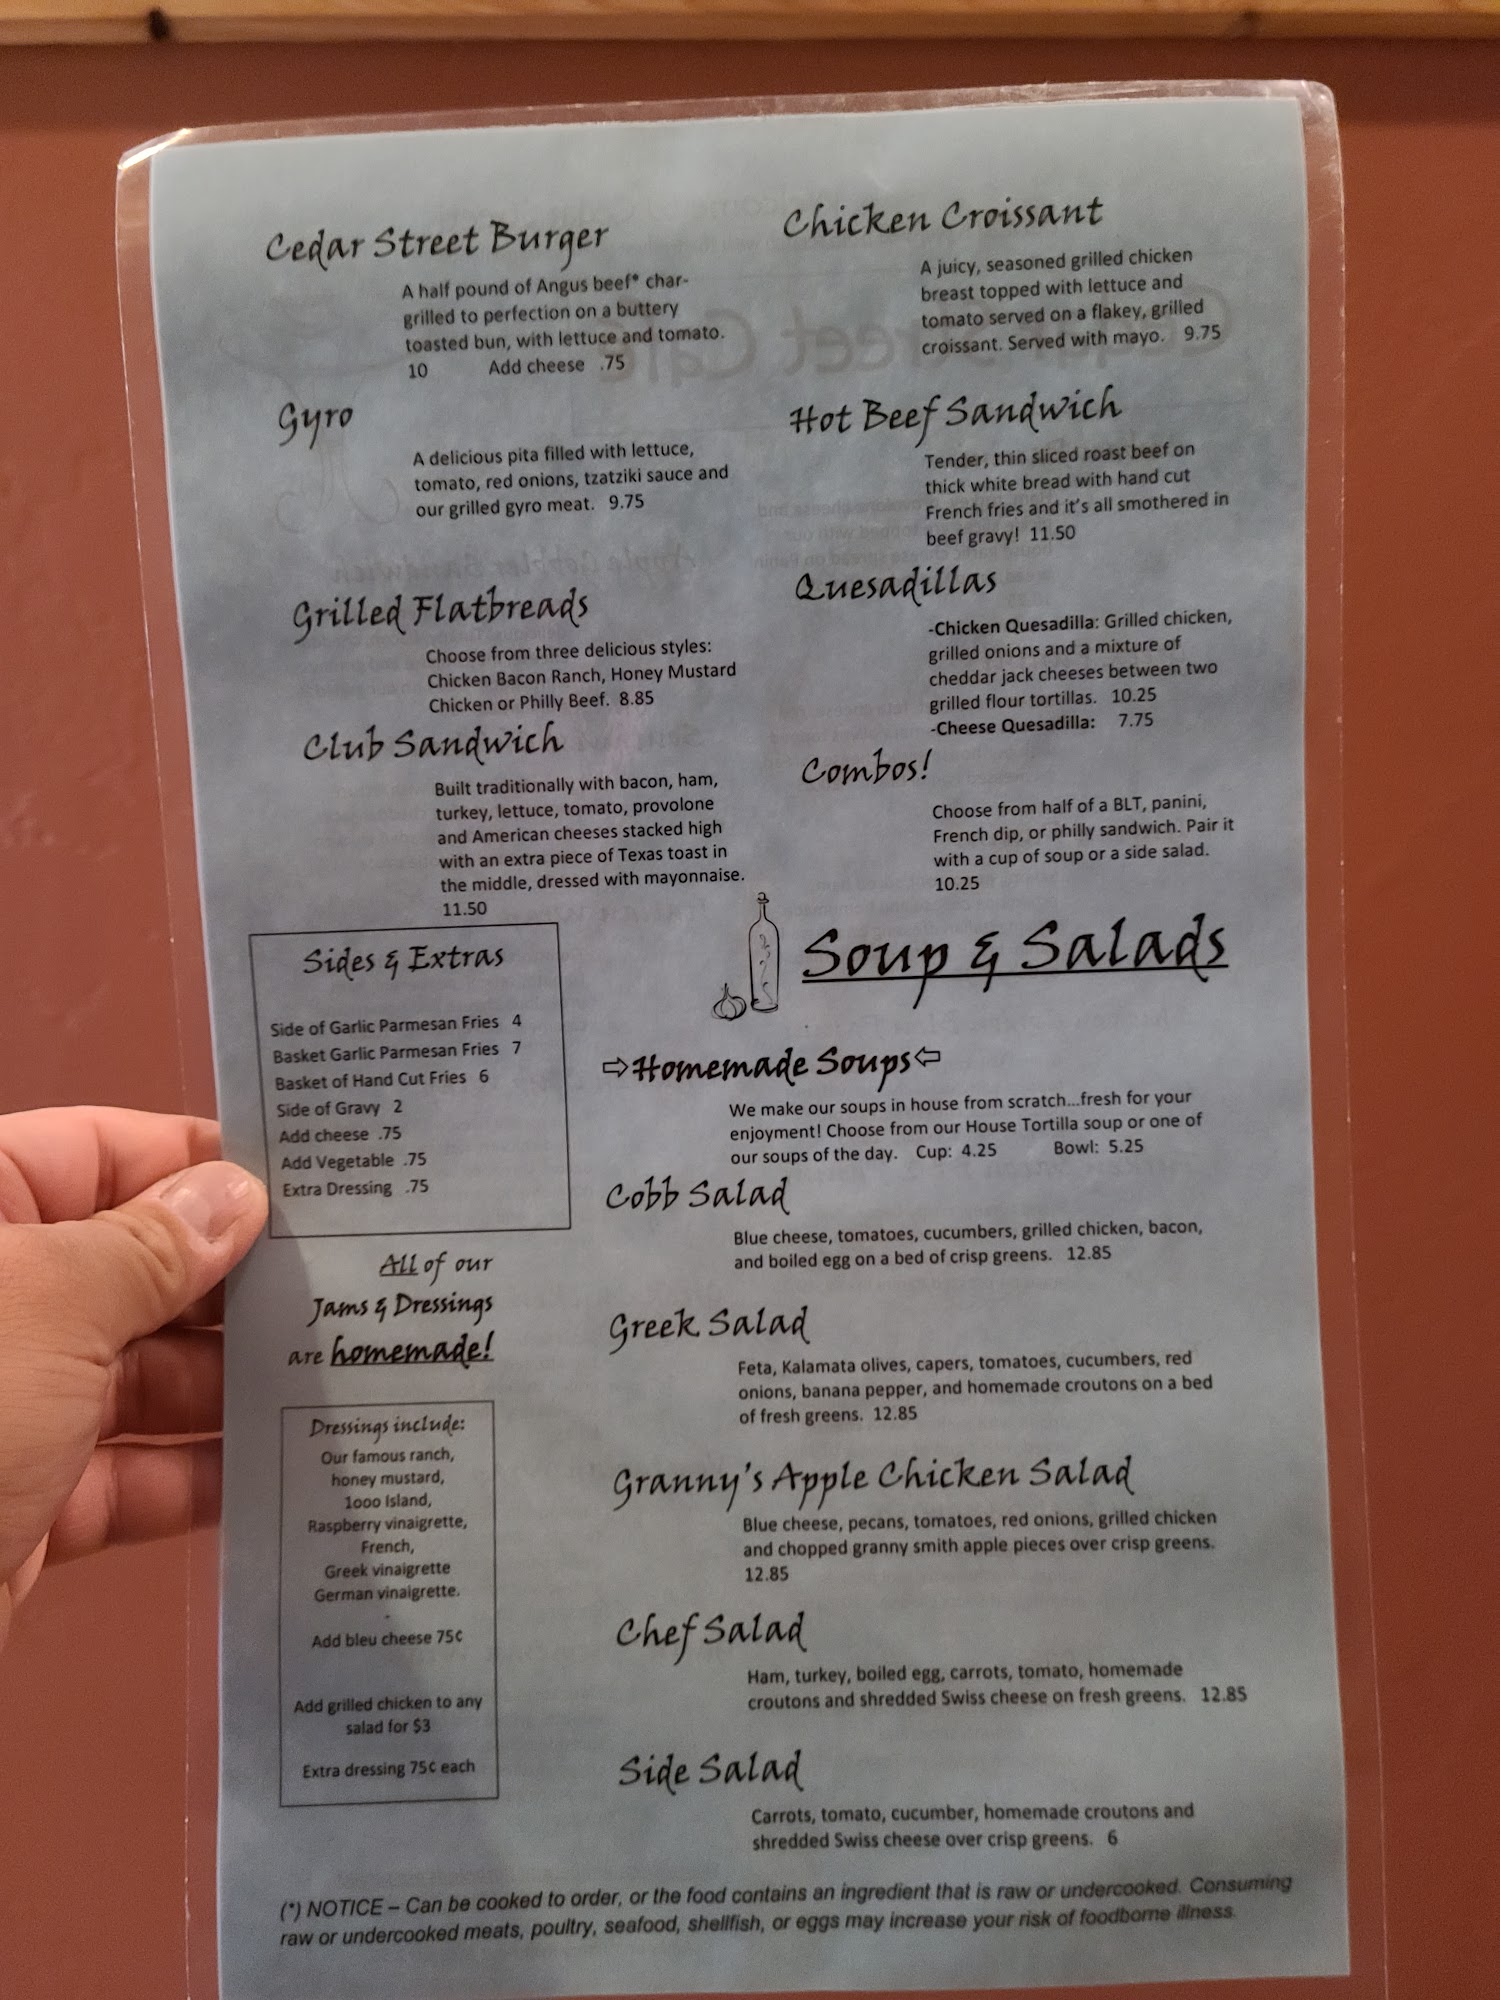 Cedar Street Burger
A half pound of Angus beef* char-
grilled to perfection on a buttery
toasted bun, with lettuce and tomato.
10 Add cheese .75
Gyro
A delicious pita filled with lettuce,
tomato, red onions, tzatziki sauce and
our grilled gyro meat. 9.75
Grilled Flatbreads
Choose from three delicious styles:
Chicken Bacon Ranch, Honey Mustard
Chicken or Philly Beef. 8.85
Club Sandwich
Built traditionally with bacon, ham,
turkey, lettuce, tomato, provolone
and American cheeses stacked high
with an extra piece of Texas toast in
the middle, dressed with mayonnaise.
11.50
Chicken Croissant
A juicy, seasoned grilled chicken
breast topped with lettuce and
tomato served on a flakey, grilled
croissant. Served with mayo. 9.75
Hot Beef Sandwich
Tender, thin sliced roast beef on
thick white bread with hand cut
French fries and it's all smothered in
beef gravy! 11.50
Quesadillas
-Chicken Quesadilla: Grilled chicken,
grilled onions and a mixture of
cheddar jack cheeses between two
grilled flour tortillas. 10.25
-Cheese Quesadilla: 7.75
Combos!
Choose from half of a BLT, panini,
French dip, or philly sandwich. Pair it
with a cup of soup or a side salad.
10.25
Sides & Extras
Side of Garlic Parmesan Fries 4
Basket Garlic Parmesan Fries 7
Basket of Hand Cut Fries 6
Side of Gravy 2
Add cheese .75
Add Vegetable .75
Extra Dressing .75
All of our
Jams & Dressings
are homemade!
Dressings include:
Our famous ranch,
honey mustard,
1ooo Island,
Raspberry vinaigrette,
French,
Greek vinaigrette
German vinaigrette.
Add bleu cheese 75¢
Add grilled chicken to any
salad for $3
Extra dressing 75¢ each
Soup & Salads
⇨Homemade Soups⇦
We make our soups in house from scratch...fresh for your
enjoyment! Choose from our House Tortilla soup or one of
our soups of the day. Cup: 4.25 Bowl: 5.25
Cobb Salad
Blue cheese, tomatoes, cucumbers, grilled chicken, bacon,
and boiled egg on a bed of crisp greens. 12.85
Greek Salad
Feta, Kalamata olives, capers, tomatoes, cucumbers, red
onions, banana pepper, and homemade croutons on a bed
of fresh greens. 12.85
Granny's Apple Chicken Salad
Blue cheese, pecans, tomatoes, red onions, grilled chicken
and chopped granny smith apple pieces over crisp greens.
12.85
Chef Salad
Ham, turkey, boiled egg, carrots, tomato, homemade
croutons and shredded Swiss cheese on fresh greens. 12.85
Side Salad
Carrots, tomato, cucumber, homemade croutons and
shredded Swiss cheese over crisp greens. 6
(*) NOTICE – Can be cooked to order, or the food contains an ingredient that is raw or undercooked. Consuming
raw or undercooked meats, poultry, seafood, shellfish, or eggs may increase your risk of foodborne illness.